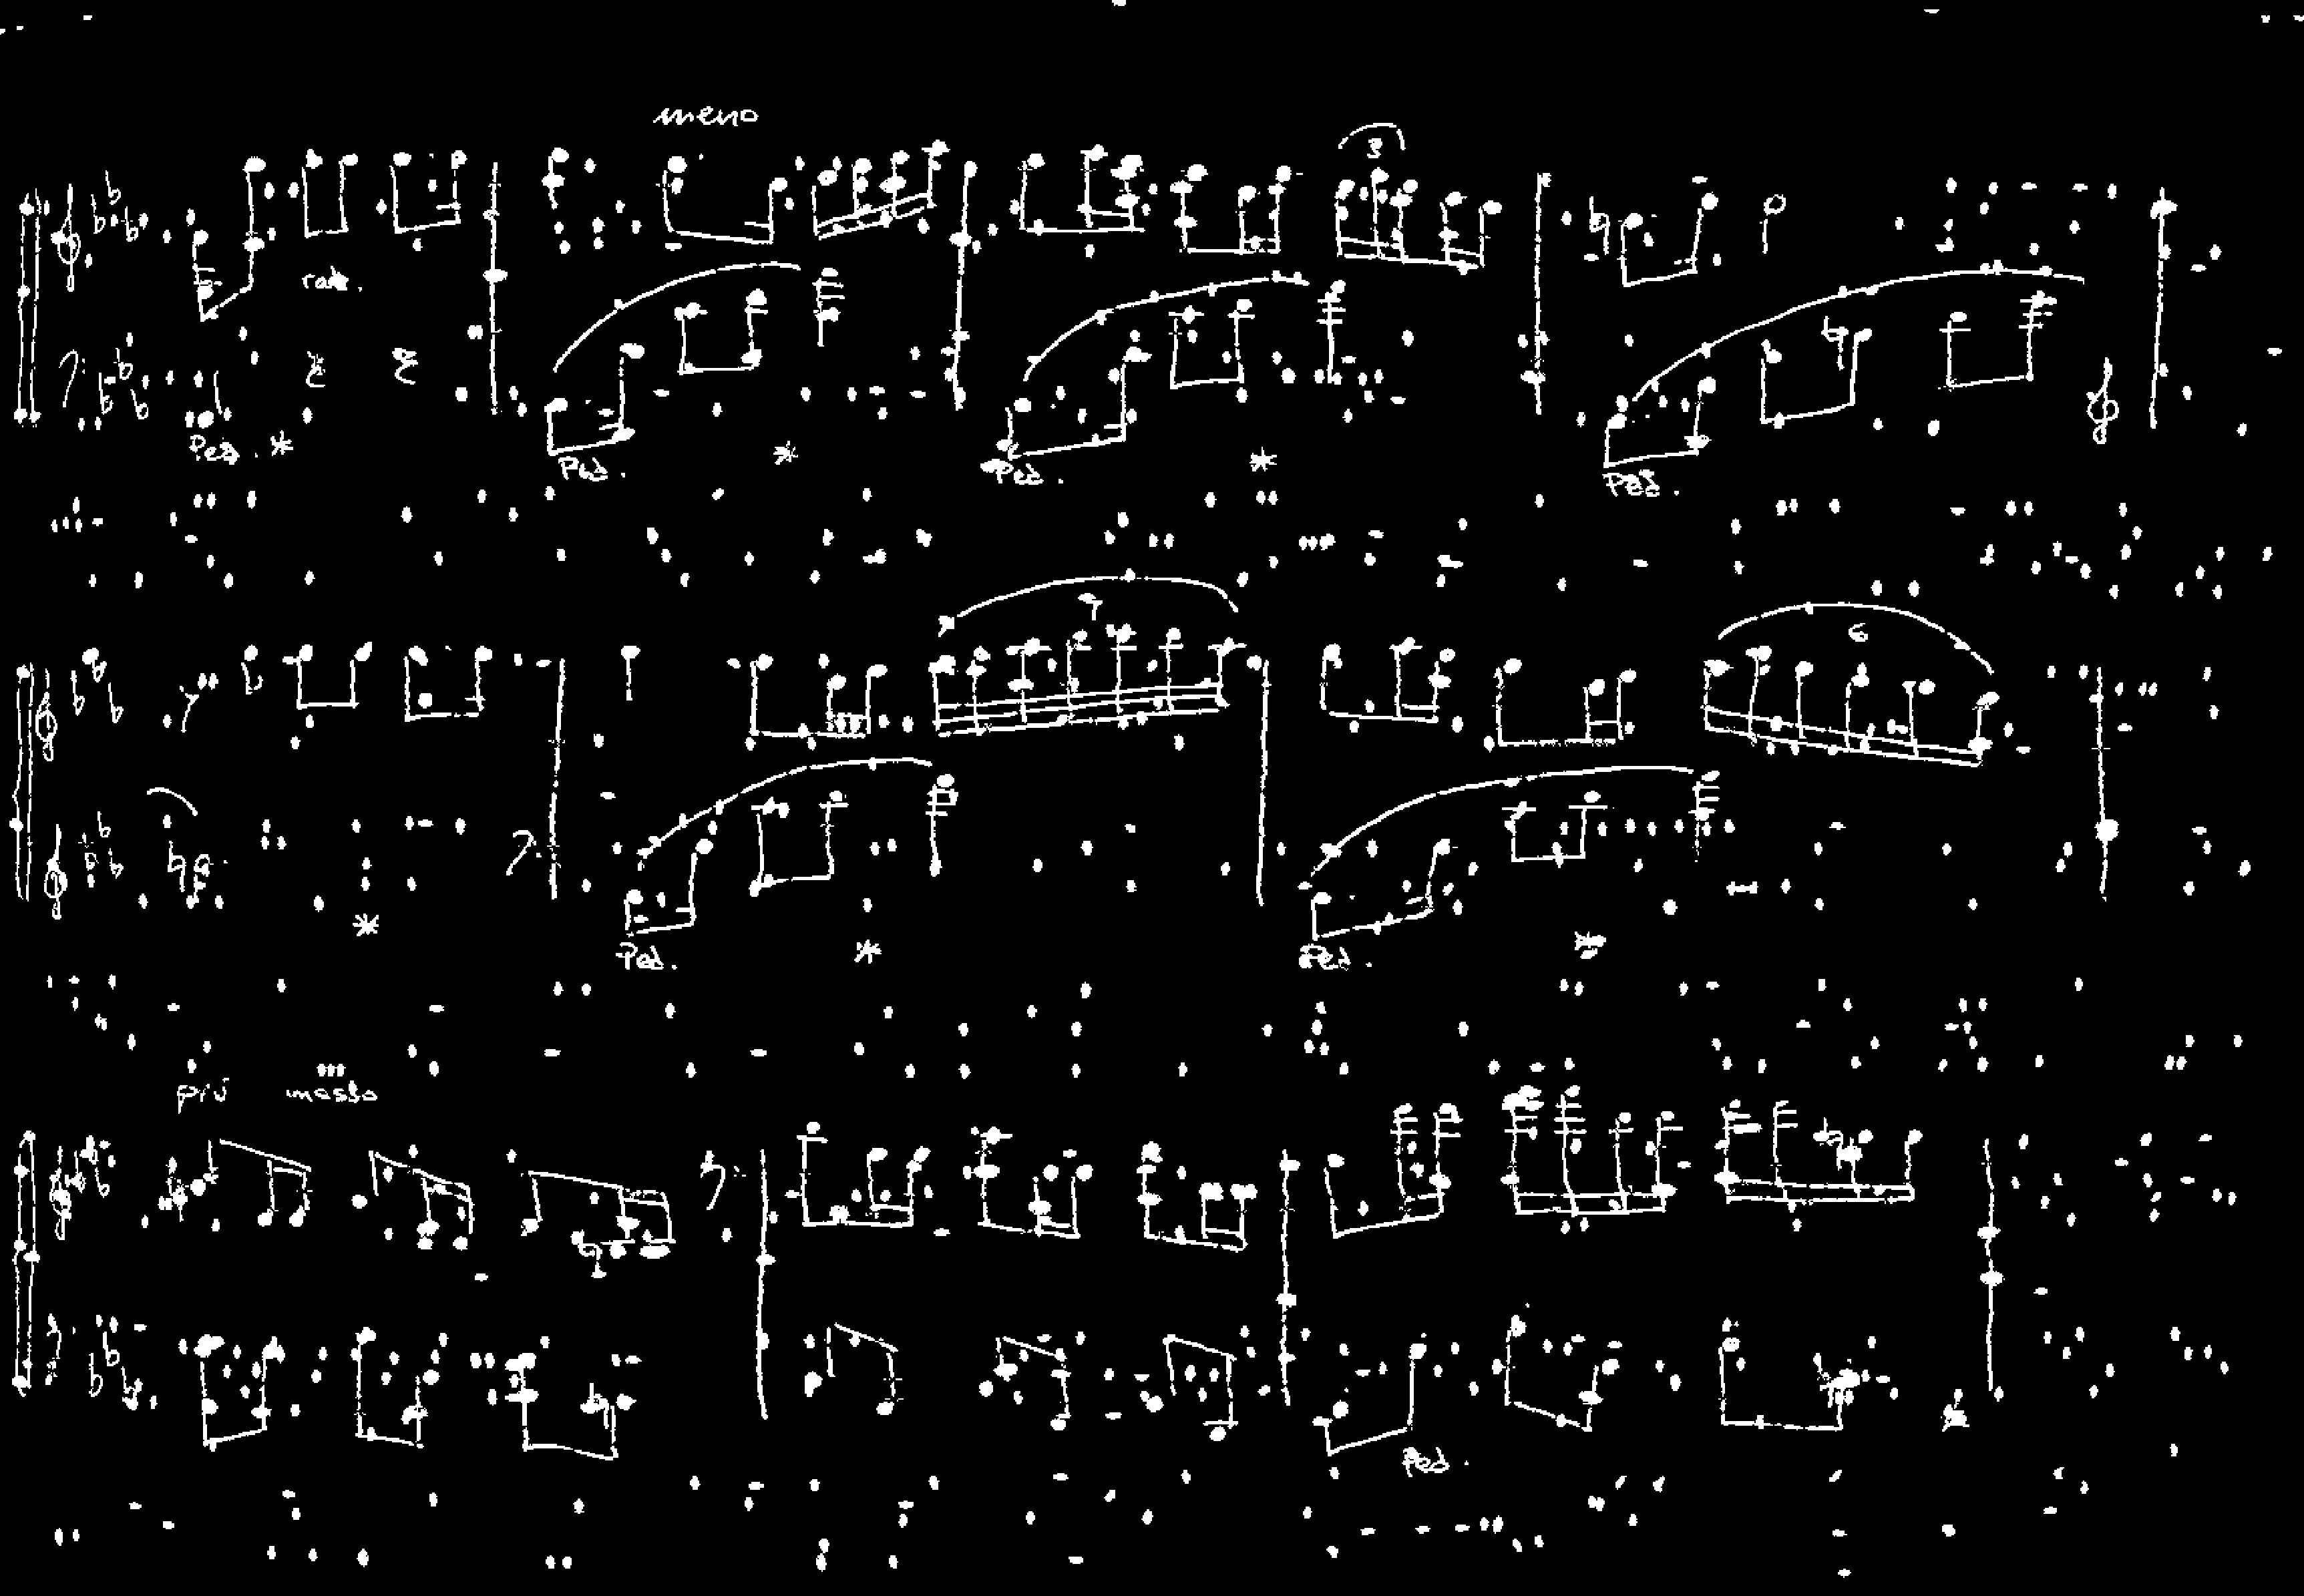 meno
3
rall.
Ped. *
Ped. * Ped. * Ped.
7 6
*
Ped. * Ped. *
più mosso
Ped.